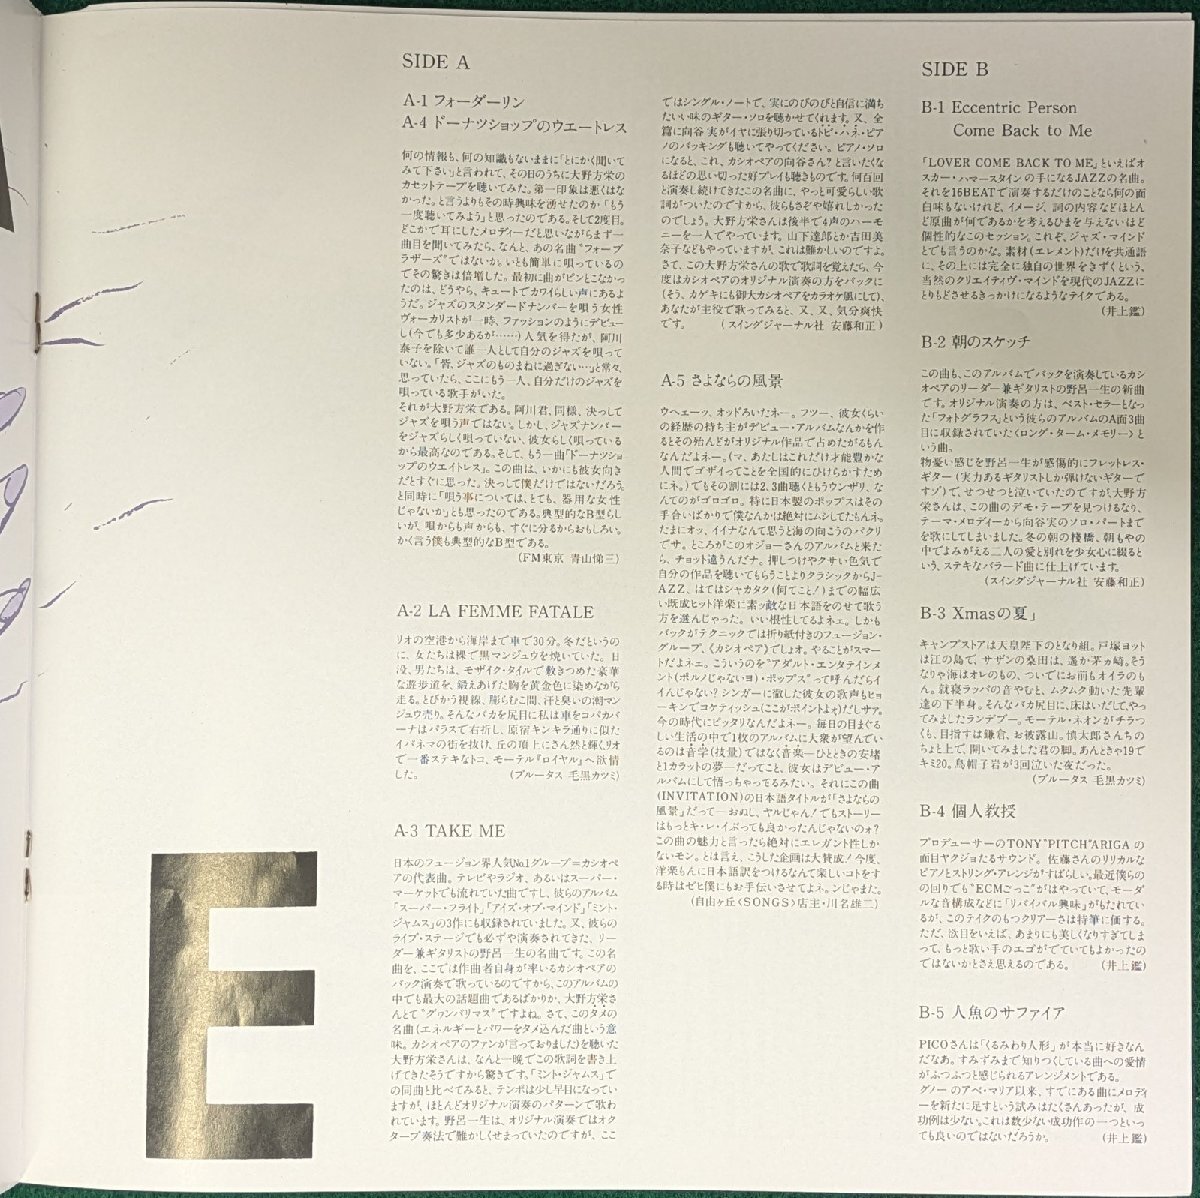 SIDE A
A-1 フォーダーリン
A-4 ドーナツショップのウエートレス
何の情報も、何の知識もないままに「とにかく聞いて
みて下さい」と言われて、その日のうちに大野方栄の
カセットテープを聴いてみた。第一印象は悪くはな
かった。と言うよりもその時興味を湧せたのか「もう
一度聴いてみよう」と思ったのである。そして2度目。
どこかで耳にしたメロディーだと思いながらまず一
曲目を聞いてみたら、なんと、あの名曲“フォーブ
ラザーズ”ではないか。いとも簡単に唄っているの
でその驚きは倍増した。最初に曲がピンとこなかっ
たのは、どうやら、キュートでカワイらしい声にあるよ
うだ。ジャズのスタンダードナンバーを唄う女性
ヴォーカリストが一時、ファッションのようにデビュー
し(今でも多少あるが……)人気を得たが、阿川
泰子を除いて誰一人として自分のジャズを唄って
いない。「皆、ジャズのものまねに過ぎない…」と常々、
思っていたら、ここにもう一人、自分だけのジャズを
唄っている歌手がいた。
それが大野方栄である。阿川君、同様、決っして
ジャズを唄う声ではない。しかし、ジャズナンバー
をジャズらしく唄っていない、彼女らしく唄っている
から最高なのである。そして、もう一曲「ドーナツショ
ップのウエイトレス」。この曲は、いかにも彼女向き
だとすぐに思った。決つして僕だけではないだろう。
と同時に「唄う事については、とても、器用な女性
じゃないか」とも思ったのである。典型的なB型らし
いが、唄からも声からも、すぐに分るからおもしろい。
かく言う僕も典型的なB型である。
(FM東京 青山悌三)
A-2 LA FEMME FATALE
リオの空港から海岸まで車で30分。冬だというの
に、女たちは裸で黒マンジュウを焼いていた。日
没、男たちは、モザイク・タイルで敷きつめた豪華
な遊歩道を、鍛えあげた胸を黄金色に染めながら
走る。とびかう視線、膨らむこ間、汗と臭いの潮マン
ジュウ売り。そんなバカを尻目に私は車をコパカバ
ーナはパラスで右折し、原宿キンキラ通りに似た
イパネマの街を抜け、丘の頂上にさん然と輝くリオ
で一番ステキなトコ、モーテル『ロイヤル』へ欲情
した。 (ブルータス 毛黒カツミ)
A-3 TAKE ME
日本のフュージョン界人気No.1グループ=カシオペ
アの代表曲。テレビやラジオ、あるいはスーパー・
マーケットでも流れていた曲ですし、彼らのアルバム
「スーパー・フライト」、「アイズ・オブ・マインド」「ミント・
ジャムス」の3作にも収録されていました。又、彼らの
ライブ・ステージでも必ずや演奏されてきた、リー
ダー兼ギタリストの野呂一生の名曲です。この名
曲を、ここでは作曲者自身が率いるカシオペアの
バック演奏で歌っているのですから、このアルバムの
中でも最大の話題曲であるばかりか、大野方栄さ
んとて“グヮンバリマス”ですよね。さて、このタメの
名曲(エネルギーとパワーをタメ込んだ曲という意
味。カシオペアのファンが言っておりました)を聴いた
大野方栄さんは、なんと一晩でこの歌詞を書き上
げてきたそうですから驚きです。「ミント・ジャムス」で
の同曲と比べてみると、テンポは少し早目になってい
ますが、ほとんどオリジナル演奏のパターンで歌わ
れています。野呂一生は、オリジナル演奏ではオク
ターブ奏法で難かしくせまっていたのですが、ここ
ではシングル・ノートで、実にのびのびと自信に満ち
たいい味のギター・ソロを聴かせてくれます。又、全
篇に向谷実がイヤに張り切っているトビ・ハネ・ピア
ノのバッキングも聴いてやってください。ピアノ・ソロ
になると、これ、カシオペアの向谷さん？と言いたくな
るほどの思い切った好プレイも聴きものです。何百回
と演奏し続けてきたこの名曲に、やっと可愛らしい歌
詞がついたのですから、彼らもさぞや嬉しかった
のでしょう。大野方栄さんは後半で4声のハーモ
ニーを一人でやっています。山下達郎とか吉田美
奈子などもやっていますが、これは難かしいのですよ。
さて、この大野方栄さんの歌で歌詞を覚えたら、今
度はカシオペアのオリジナル演奏の方をバックに
(そう、カゲキにも御大カシオペアをカラオケ風にして)、
あなたが主役で歌ってみると、又、又、気分爽快
です。 (スイングジャーナル社 安藤和正)
A-5 さよならの風景
ウヘェーッ、オッドろいたネー。フツー、彼女くらい
の経歴の持ち主がデビュー・アルバムなんかを作
るとその殆んどがオリジナル作品で占めたがるもん
なんだよネー。(マ、あたしはこれだけ才能豊かな
人間でゴザイってことを全国的にひけらかすため
にネ。)でもその割には2、3曲聴くともうウンザリ、な
んてのがゴロゴロ。特に日本製のポップスはその
手合いばかりで僕なんかは絶対にムシしてたもんネ。
たまにオッ、イイナなんて思うと海の向こうのパクリ
でサ。ところがこのオジョーさんのアルバムと来た
ら、チョット違うんだナ。押しつけやクサい色気で
自分の作品を聴いてもらうことよりクラシックからJ-
AZZ、はてはシャカタク(何てこと!)までの幅広
い既成ヒット洋楽に素ッ敵な日本語をのせて歌う
方を選んじゃった。いい根性してるよネェ。しかも
バックがテクニックでは折り紙付きのフュージョン・
グループ、〈カシオペア〉でしょオ。やることがスマー
トだよネェ。こういうのを“アダルト・エンタテインメ
ント(ポルノじゃないヨ)・ポップス”って呼んだらイ
イんじゃない？シンガーに徹した彼女の歌声もヒョ
ーキンでコケティッシュ(ここがポイントよ)だしサア。
今の時代にピッタリなんだよネー。毎日の目まぐる
しい生活の中で1枚のアルバムに大衆が望んでい
るのは音学(技量)ではなく音楽―ひとときの安堵
と1カラットの夢―だってこと、彼女はデビュー・ア
ルバムにして悟っちゃってるみたい。それにこの曲
(INVITATION)の日本語タイトルが「さよならの
風景」だって―おぬし、ヤルじゃん！でもストーリー
はもっとキ・レ・イぶっても良かったんじゃないのォ？
この曲の魅力と言ったら絶対にエレガント性しか
ないモン。とは言え、こうした企画は大賛成！今度、
洋楽もんに日本語訳をつけるなんて楽しいコトをす
る時はゼヒ僕にもお手伝いさせてよネ。ンじゃまた。
(自由ヶ丘〈SONGS〉店主・川名雄二)
SIDE B
B-1 Eccentric Person
Come Back to Me
「LOVER COME BACK TO ME」といえばオ
スカー・ハマースタインの手になるJAZZの名曲。
それを16BEATで演奏するだけのことなら何の面
白味もないけれど、イメージ、詞の内容などほとん
ど原曲が何であるかを考えるひまを与えないほど
個性的なこのセッション。これぞ、ジャズ・マインド
とでも言うのかな。素材(エレメント)だけを共通語
に、その上には完全に独自の世界をきずくという、
当然のクリエイティヴ・マインドを現代のJAZZに
とりもどさせるきっかけになるようなテイクである。
(井上鑑)
B-2 朝のスケッチ
この曲も、このアルバムでバックを演奏しているカシ
オペアのリーダー兼ギタリストの野呂一生の新曲
です。オリジナル演奏の方は、ベスト・セラーとなっ
た「フォトグラフス」という彼らのアルバムのA面3曲
目に収録されていた〈ロング・ターム・メモリー〉と
いう曲。
物憂い感じを野呂一生が感傷的にフレットレス・
ギター(実力あるギタリストしか弾けないギターで
すゾ)で、せつせつと泣いていたのですが、大野方
栄さんは、この曲のデモ・テープを見つけるなり、
テーマ・メロディーから向谷実のソロ・パートまで
を歌にしてしまいました。冬の朝の棧橋、朝もやの
中でよみがえる二人の愛と別れを少女心に綴ると
いう、ステキなバラード曲に仕上げています。
(スイングジャーナル社 安藤和正)
B-3 Xmasの夏」
キャンプストアは天皇陛下のとなり組。戸塚ヨット
は江の島で、サザンの桑田は、遙か茅ヶ崎。そう
なりゃ海はオレのもの、ついでにお前もオイラのも
ん。就寝ラッパの音やむと、ムクムク動いた先輩
達の下半身。そんなバカ尻目に、床はいだしてやっ
てみましたランデブー。モーテル・ネオンがチラつ
くも、目指すは鎌倉、お披露山。慎太郎さんちの
ちょと上で、開いてみました君の脚。あんとき19で
キミ20。烏帽子岩が3回泣いた夜だった。
(ブルータス 毛黒カツミ)
B-4 個人教授
プロデューサーのTONY“PITCH”ARIGAの
面目ヤクジョたるサウンド。佐藤さんのリリカルな
ピアノとストリング・アレンジがすばらしい。最近僕らの
の回りでも“ECMごっこ”がはやっていて、モーダ
ルな音構成などに「リバイバル興味」がもたれてい
るが、このテイクのもつクリアーさは特筆に価する。
ただ、欲目をいえば、あまりにも美しくなりすぎてしま
って、もっと歌い手のエゴがでていてもよかったの
ではないかとさえ思えるのである。 (井上鑑)
B-5 人魚のサファイア
PICOさんは「くるみわり人形」が本当に好きなん
だなあ。すみずみまで知りつくしている曲への愛情
がふつふつと感じられるアレンジメントである。
グノーのアベ・マリア以来、すでにある曲にメロディ
ーを新たに足すという試みはたくさんあったが、成
功例は少ない。これは数少ない成功作の一つといっ
ても良いのではないだろうか。 (井上鑑)
E